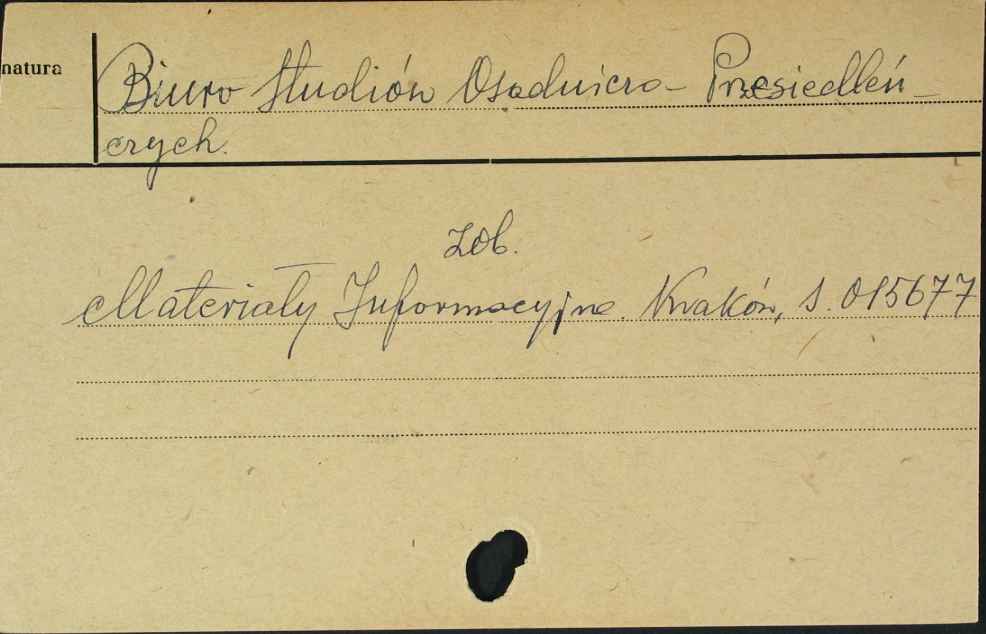 natura
Biuro Studiów Osadniczo-Przesiedleń-
czych.
zob.
Materiały Informacyjne. Kraków, S. 015677